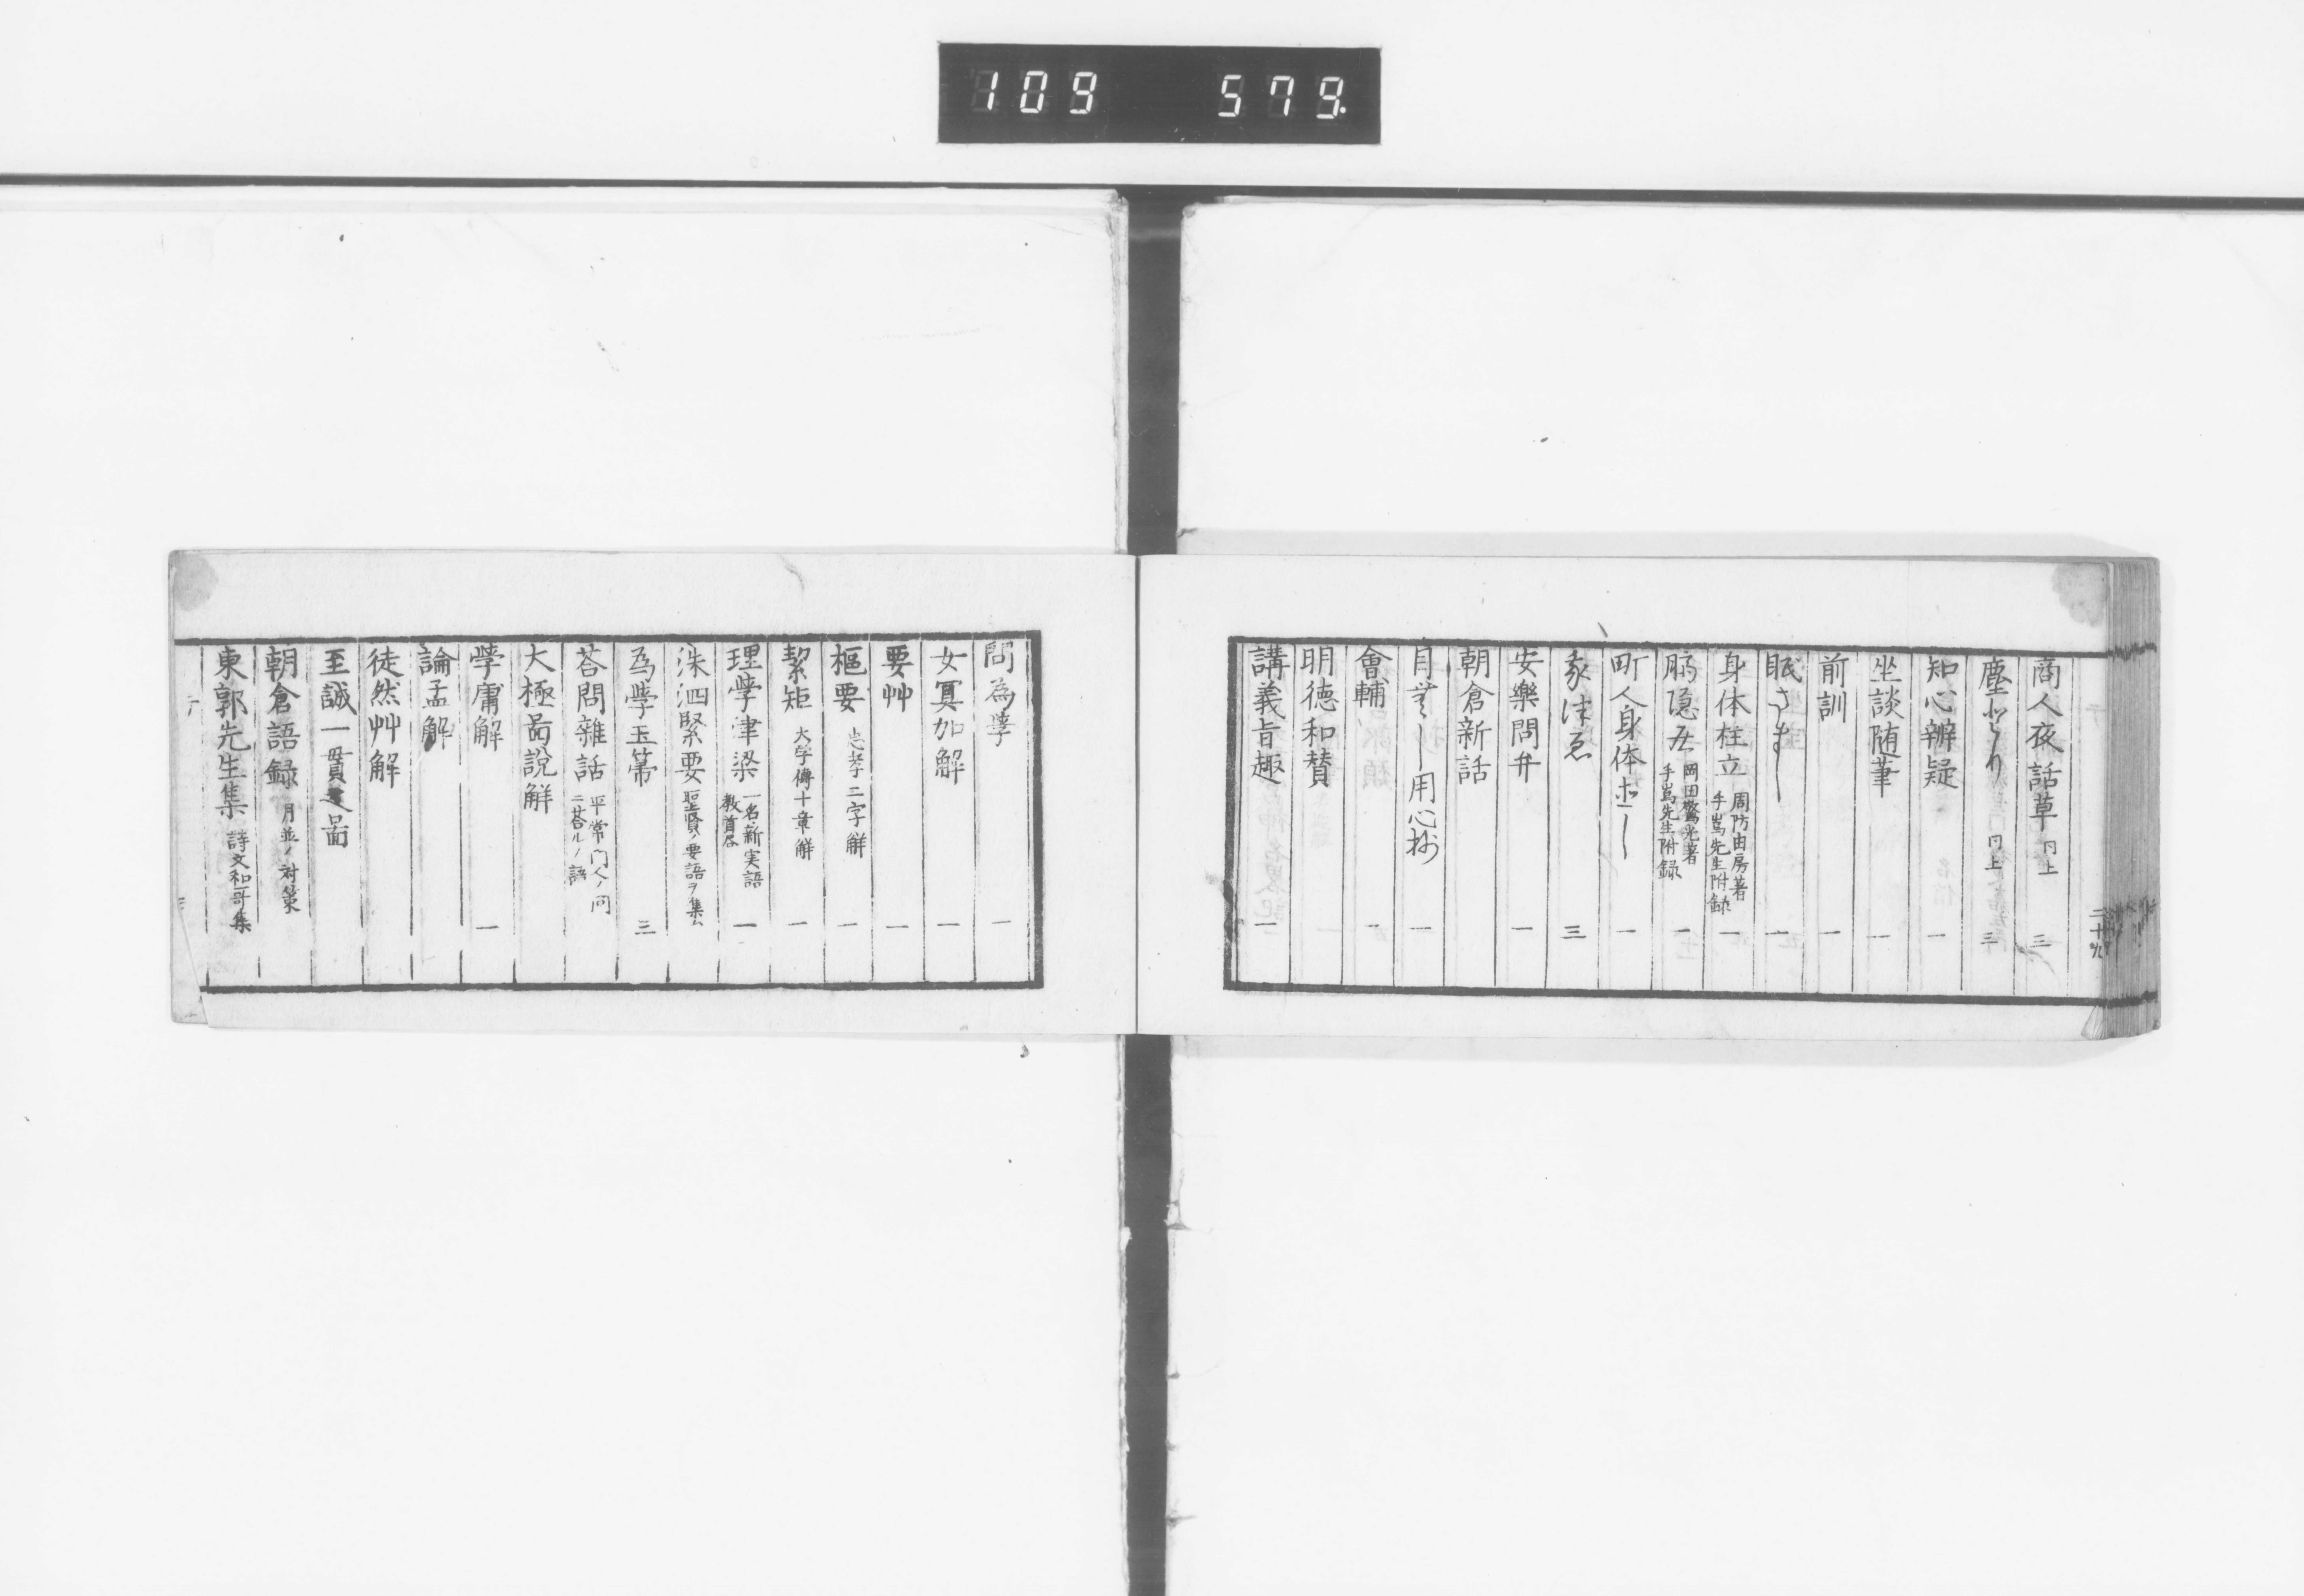 109 579.
商人夜話草 同上 三
塵とり 同上 三
知心辨疑 一
坐談随筆 一
前訓 一
眠さまし 一
身体柱立 周防由房著 手嶌先生附録 一
岡田驚光著 手嶌先生附録 一
町人身体 一
三
安樂問弁 一
朝倉新話
用心抄 一
會輔 一
明德和賛
講義旨趣 一
問為學 一
女冥加解 一
要艸 一
樞要 忠孝二字解 一
絜矩 大学傳十章解 一
理學津梁 一名新実語教首書 一
洙泗緊要 聖賢ノ要語ヲ集ム
為學玉箒 三
荅問雜話 平常門人ノ問ニ荅ルノ語
大極啚説解
學庸解 一
論孟解
徒然艸解
至誠一貫之啚
朝倉語録 月並ノ対策
東郭先生集 詩文和哥集